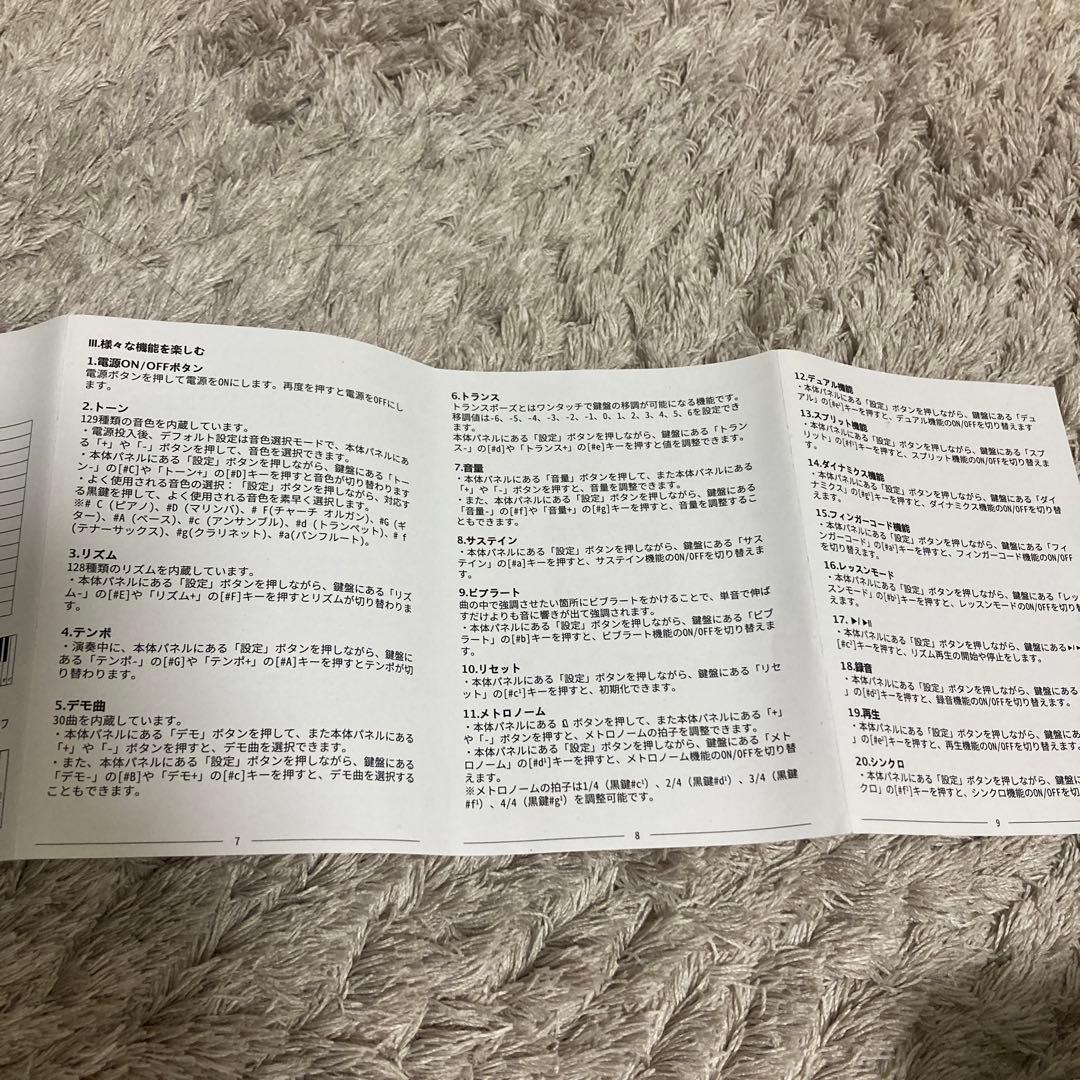 III.様々な機能を楽しむ
1.電源ON/OFFボタン
電源ボタンを押して電源をONにします。再度を押すと電源をOFFにし
ます。
2.トーン
129種類の音色を内蔵しています。
・電源投入後、デフォルト設定は音色選択モードで、本体パネルにあ
る「+」や「-」ボタンを押して、音色を選択できます。
・本体パネルにある「設定」ボタンを押しながら、鍵盤にある「トー
ン-」の[#C]や「トーン+」の[#D]キーを押すと音色が切り替わります
・よく使用される音色の選択：「設定」ボタンを押しながら、対応す
る黒鍵を押して、よく使用される音色を素早く選択します。
※# C (ピアノ)、#D (マリンバ)、# F(チャーチ オルガン)、#G (ギ
ター)、#A (ベース)、#c (アンサンブル)、#d (トランペット)、# f
(テナーサックス)、#g(クラリネット)、#a(パンフルート)。
3.リズム
128種類のリズムを内蔵しています。
・本体パネルにある「設定」ボタンを押しながら、鍵盤にある「リズ
ム-」の[#E]や「リズム+」の[#F]キーを押すとリズムが切り替わりま
す。
4.テンポ
・演奏中に、本体パネルにある「設定」ボタンを押しながら、鍵盤に
ある「テンポ-」の[#G]や「テンポ+」の[#A]キーを押すとテンポが切
り替わります。
5.デモ曲
30曲を内蔵しています。
・本体パネルにある「デモ」ボタンを押して、また本体パネルにある
「+」や「-」ボタンを押すと、デモ曲を選択できます。
・また、本体パネルにある「設定」ボタンを押しながら、鍵盤にある
「デモ-」の[#B]や「デモ+」の[#c]キーを押すと、デモ曲を選択する
こともできます。
7
6.トランス
トランスポーズとはワンタッチで鍵盤の移調が可能になる機能です。
移調値は-6、-5、-4、-3、-2、-1、0、1、2、3、4、5、6を設定でき
ます。
本体パネルにある「設定」ボタンを押しながら、鍵盤にある「トラン
ス-」の[#d]や「トランス+」の[#e]キーを押すと値を調整できます。
7.音量
・本体パネルにある「音量」ボタンを押して、また本体パネルにある
「+」や「-」ボタンを押すと、音量を調整できます。
・また、本体パネルにある「設定」ボタンを押しながら、鍵盤にある
「音量-」の[#f]や「音量+」の[#g]キーを押すと、音量を調整するこ
ともできます。
8.サステイン
・本体パネルにある「設定」ボタンを押しながら、鍵盤にある「サス
テイン」の[#a]キーを押すと、サステイン機能のON/OFFを切り替えま
す。
9.ビブラート
曲の中で強調させたい箇所にビブラートをかけることで、単音で伸ば
すだけよりも音に響きが出て強調されます。
・本体パネルにある「設定」ボタンを押しながら、鍵盤にある「ビブ
ラート」の[#b]キーを押すと、ビブラート機能のON/OFFを切り替えま
す。
10.リセット
・本体パネルにある「設定」ボタンを押しながら、鍵盤にある「リセ
ット」の[#c¹]キーを押すと、初期化できます。
11.メトロノーム
・本体パネルにある ボタンを押して、また本体パネルにある「+」
や「-」ボタンを押すと、メトロノームの拍子を調整できます。
・本体パネルにある「設定」ボタンを押しながら、鍵盤にある「メト
ロノーム」の[#d¹]キーを押すと、メトロノーム機能のON/OFFを切り替
えます。
※メトロノームの拍子は1/4 (黒鍵#c¹) 、2/4 (黒鍵#d¹) 、3/4 (黒鍵
#f¹) 、4/4 (黒鍵#g¹) を調整可能です。
8
12.デュアル機能
・本体パネルにある「設定」ボタンを押しながら、鍵盤にある「デュ
アル」の[#e¹]キーを押すと、デュアル機能のON/OFFを切り替えます
13.スプリット機能
・本体パネルにある「設定」ボタンを押しながら、鍵盤にある「スプ
リット」の[#f¹]キーを押すと、スプリット機能のON/OFFを切り替えま
す。
14.ダイナミクス機能
・本体パネルにある「設定」ボタンを押しながら、鍵盤にある「ダイ
ナミクス」の[#g¹]キーを押すと、ダイナミクス機能のON/OFFを切り替え
ます。
15.フィンガーコード機能
・本体パネルにある「設定」ボタンを押しながら、鍵盤にある「フィ
ンガーコード」の[#a¹]キーを押すと、フィンガーコード機能のON/OFF
を切り替えます。
16.レッスンモード
・本体パネルにある「設定」ボタンを押しながら、鍵盤にある「レッ
スンモード」の[#b¹]キーを押すと、レッスンモードのON/OFFを切り替
えます。
17. ▶/ ▶II
・本体パネルにある「設定」ボタンを押しながら、鍵盤にある
[#c²]キーを押すと、リズム再生の開始や停止をします。
18.録音
・本体パネルにある「設定」ボタンを押しながら、鍵盤にある
」の[#d²]キーを押すと、録音機能のON/OFFを切り替えます。
19.再生
・本体パネルにある「設定」ボタンを押しながら、鍵盤にある
」の[#e²]キーを押すと、再生機能のON/OFFを切り替えます。
20.シンクロ
・本体パネルにある「設定」ボタンを押しながら、鍵盤に
クロ」の[#f²]キーを押すと、シンクロ機能のON/OFFを切
9
フ